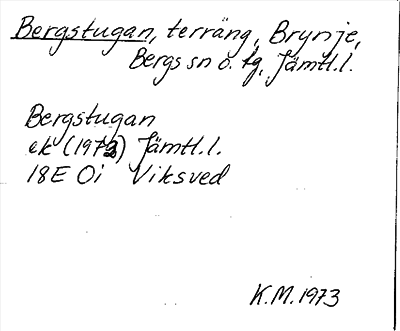 Bergstugan, terräng, Brynje,
Bergs sn o. tg, Jämtl.l.
Bergstugan
ek (1973) Jämtl.l.
18E Oi Viksved
K.M. 1973